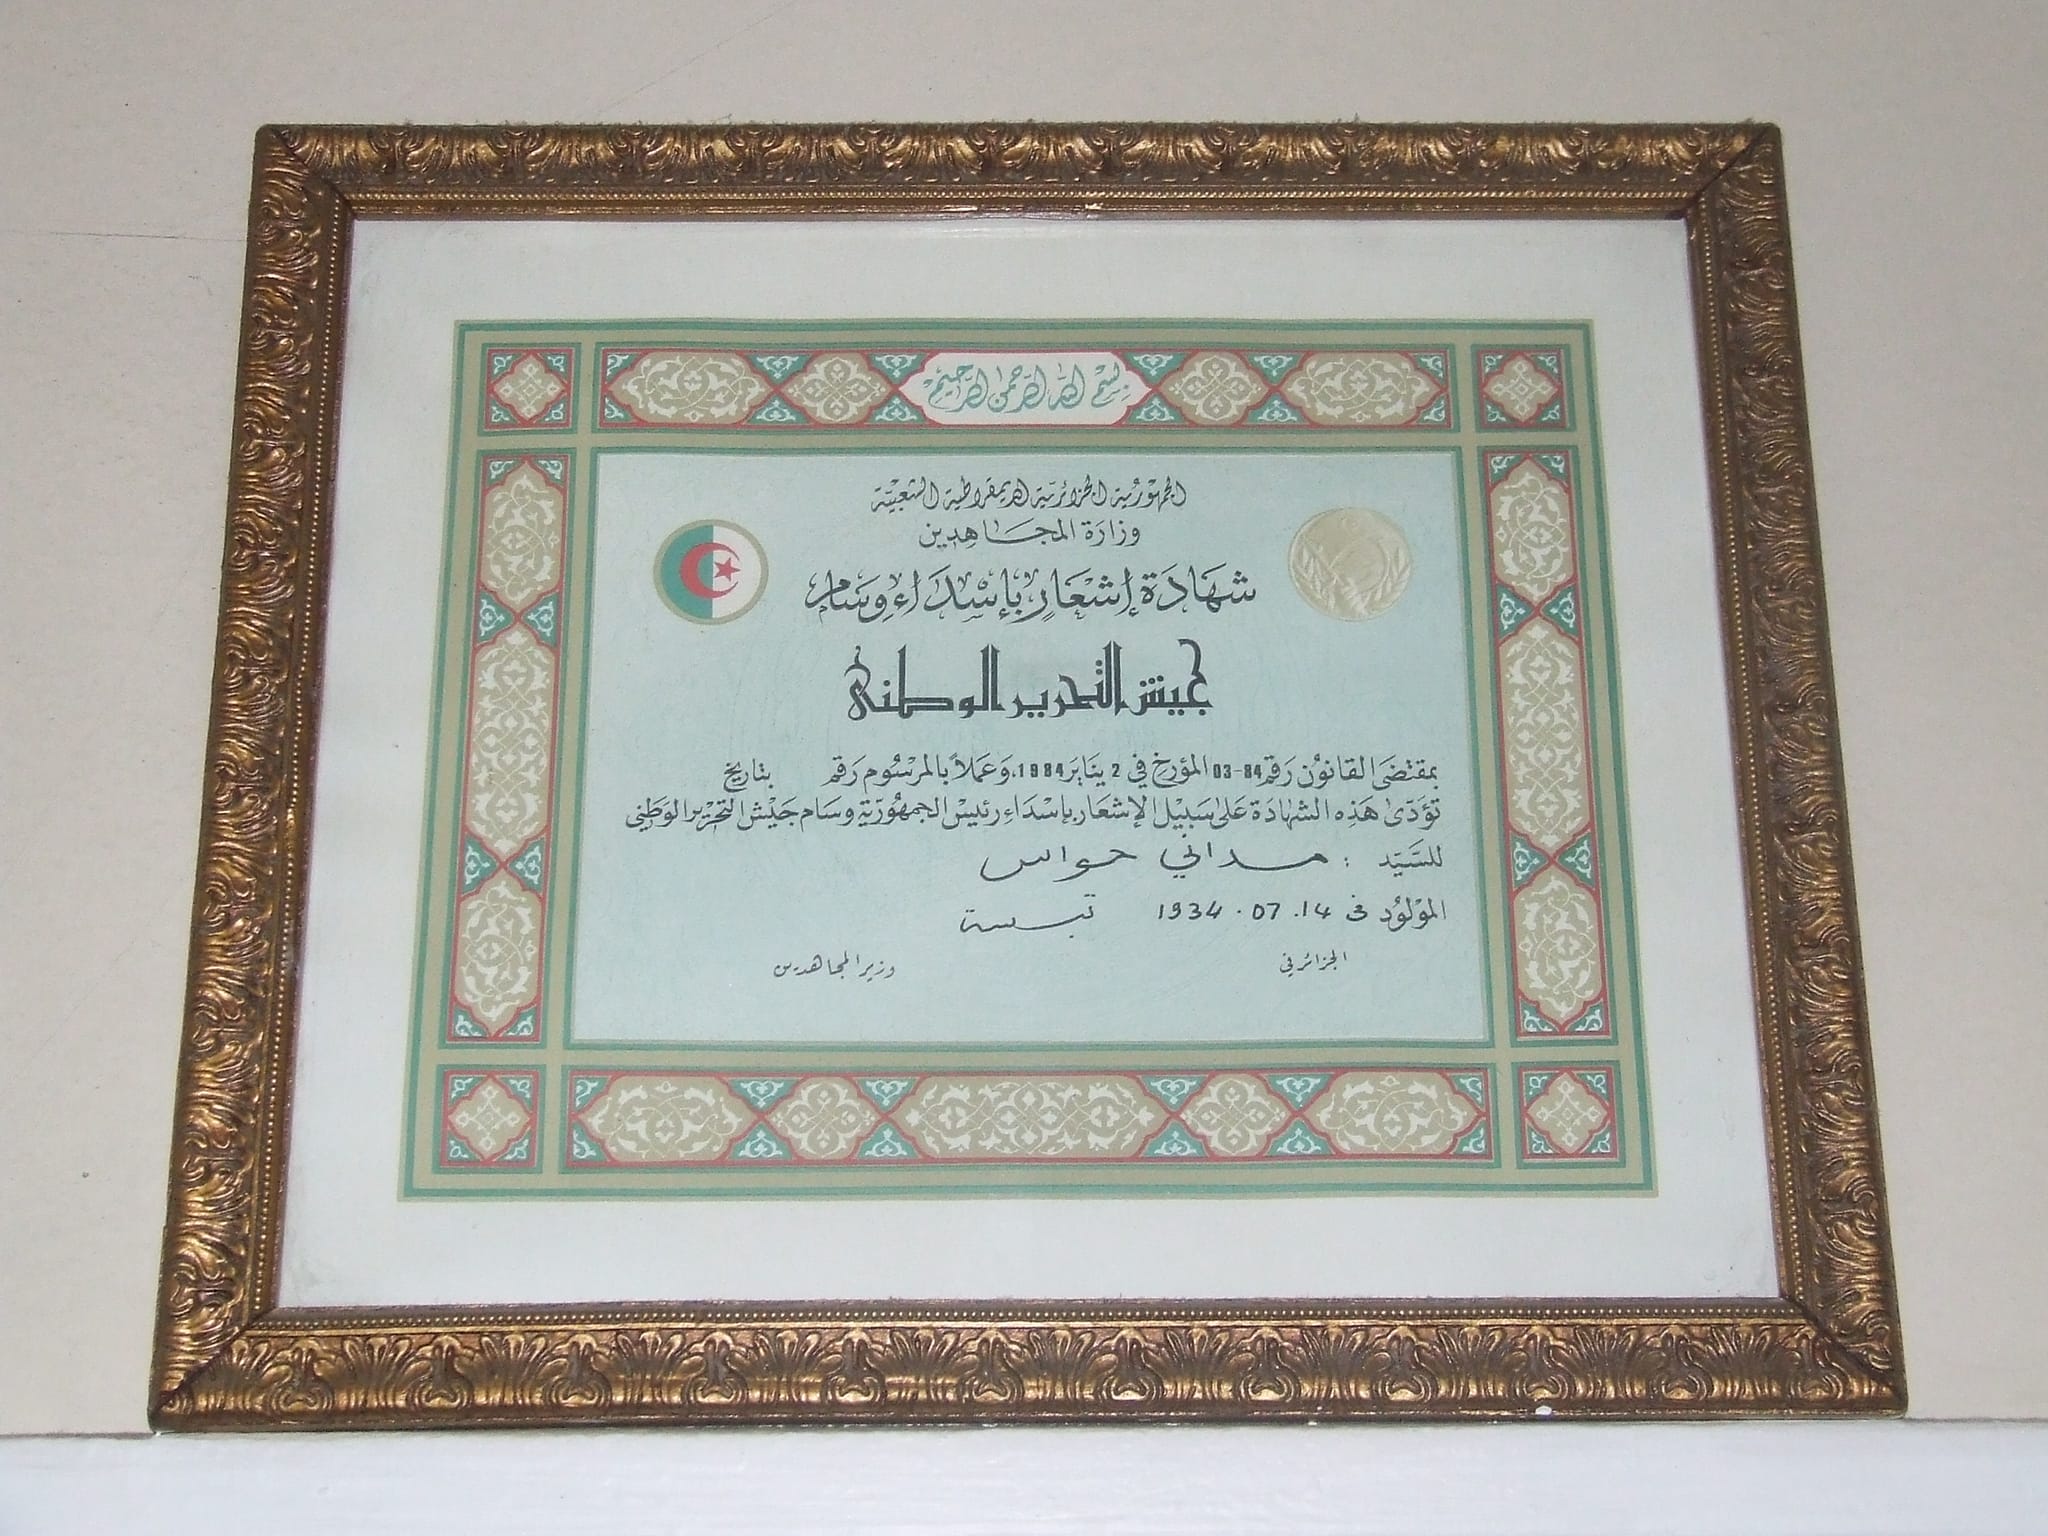 بسم الله الرحمن الرحيم
الجمهورية الجزائرية الديمقراطية الشعبية
وزارة المجاهدين
شهادة إشعار بإسداء وسام
جيش التحرير الوطني
بمقتضى القانون رقم 84-03 المؤرخ في 2 يناير 1984، وعملاً بالمرسوم رقم بتاريخ
تؤدى هذه الشهادة على سبيل الإشعار بإسداء رئيس الجمهورية وسام جيش التحرير الوطني
للسيد : مداني حواس
المولود في 14.07.1934 تبسة
الجزائر في
وزير المجاهدين